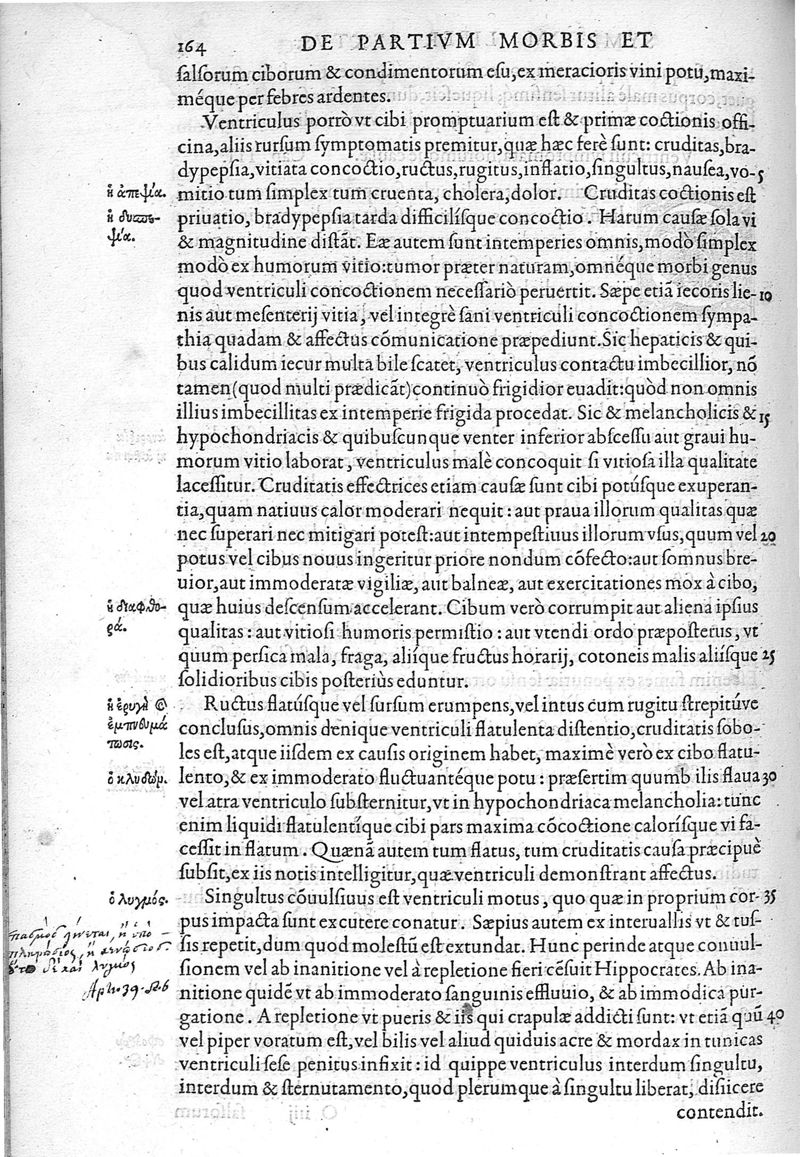 164 DE PARTIVM MORBIS ET
ſalſorum ciborum & condimentorum eſu, ex meracioris vini potu, maxi-
méque per febres ardentes.
Ventriculus porrò vt cibi promptuarium eſt & primæ coctionis offi-
cina, aliis rurſum ſymptomatis premitur, quæ hæc ferè ſunt: cruditas, bra-
dypepſia, vitiata concoctio, ructus, rugitus, inflatio, ſingultus, nauſea, vo- 5
ἡ ἀπεψία. mitio tum ſimplex tum cruenta, cholera, dolor. Cruditas coctionis eſt
ἡ δυσπε- priuatio, bradypepſia tarda difficilíſque concoctio. Harum cauſæ ſola vi
ψία. & magnitudine diſtãt. Eæ autem ſunt intemperies omnis, modò ſimplex
modò ex humorum vitio: tumor præter naturam, omnéque morbi genus
quod ventriculi concoctionem neceſſariò peruertit. Sæpe etiã iecoris lie- 10
nis aut meſenterij vitia, vel integrè ſani ventriculi concoctionem ſympa-
thia quadam & affectus cõmunicatione præpediunt. Sic hepaticis & qui-
bus calidum iecur multa bile ſcatet, ventriculus contactu imbecillior, nõ
tamen (quod multi prædicãt) continuò frigidior euadit: quòd non omnis
illius imbecillitas ex intemperie frigida procedat. Sic & melancholicis & 15
hypochondriacis & quibuſcunque venter inferior abſceſſu aut graui hu-
morum vitio laborat, ventriculus malè concoquit ſi vitioſa illa qualitate
laceſſitur. Cruditatis effectrices etiam cauſæ ſunt cibi potúſque exuperan-
tia, quam natiuus calor moderari nequit: aut praua illorum qualitas quæ
nec ſuperari nec mitigari poteſt: aut intempeſtiuus illorum vſus, quum vel 20
potus vel cibus nouus ingeritur priore nondum cõfecto: aut ſomnus bre-
uior, aut immoderatæ vigiliæ, aut balneæ, aut exercitationes mox à cibo,
ἡ διαφθο- quæ huius deſcenſum accelerant. Cibum verò corrumpit aut aliena ipſius
ρά. qualitas: aut vitioſi humoris permiſtio: aut vtendi ordo præpoſterus, vt
quum perſica mala, fraga, aliíſque fructus horarij, cotoneis malis aliíſque 25
ſolidioribus cibis poſteriùs eduntur.
ἡ ἐρυγὴ Ructus flatúſque vel ſurſum erumpens, vel intus cum rugitu ſtrepitúve
ἐμπνευμά concluſus, omnis denique ventriculi flatulenta diſtentio, cruditatis ſobo-
τωσις. les eſt, atque iiſdem ex cauſis originem habet, maximè verò ex cibo flatu-
ὁ κλυδών. lento, & ex immoderato fluctuantéque potu: præſertim quum bilis flaua 30
vel atra ventriculo ſubſternitur, vt in hypochondriaca melancholia: tunc
enim liquidi flatulentíque cibi pars maxima cõcoctione caloríſque vi fa-
ceſſit in flatum. Quænã autem tum flatus, tum cruditatis cauſa præcipuè
ſubſit, ex iis notis intelligitur, quæ ventriculi demonſtrant affectus.
ὁ λυγμός. Singultus cõuulſiuus eſt ventriculi motus, quo quæ in proprium cor- 35
pus impacta ſunt excutere conatur. Sæpius autem ex interuallis vt & tuſ-
ſis repetit, dum quod moleſtũ eſt extundat. Hunc perinde atque conuul-
ſionem vel ab inanitione vel à repletione fieri cẽſuit Hippocrates. Ab ina-
nitione quidẽ vt ab immoderato ſanguinis effluuio, & ab immodica pur-
gatione. A repletione vt pueris & iis qui crapulæ addicti ſunt: vt etiã quũ 40
vel piper voratum eſt, vel bilis vel aliud quiduis acre & mordax in tunicas
ventriculi ſeſe penitus infixit: id quippe ventriculus interdum ſingultu,
interdum & ſternutamento, quod plerumque à ſingultu liberat, diſiicere
contendit.
σπασμὸς γίνεται, ἢ ὑπὸ
πληρώσιος, ἢ κενώσιος
οὕτω δὲ καὶ λυγμὸς
Aph. 39.